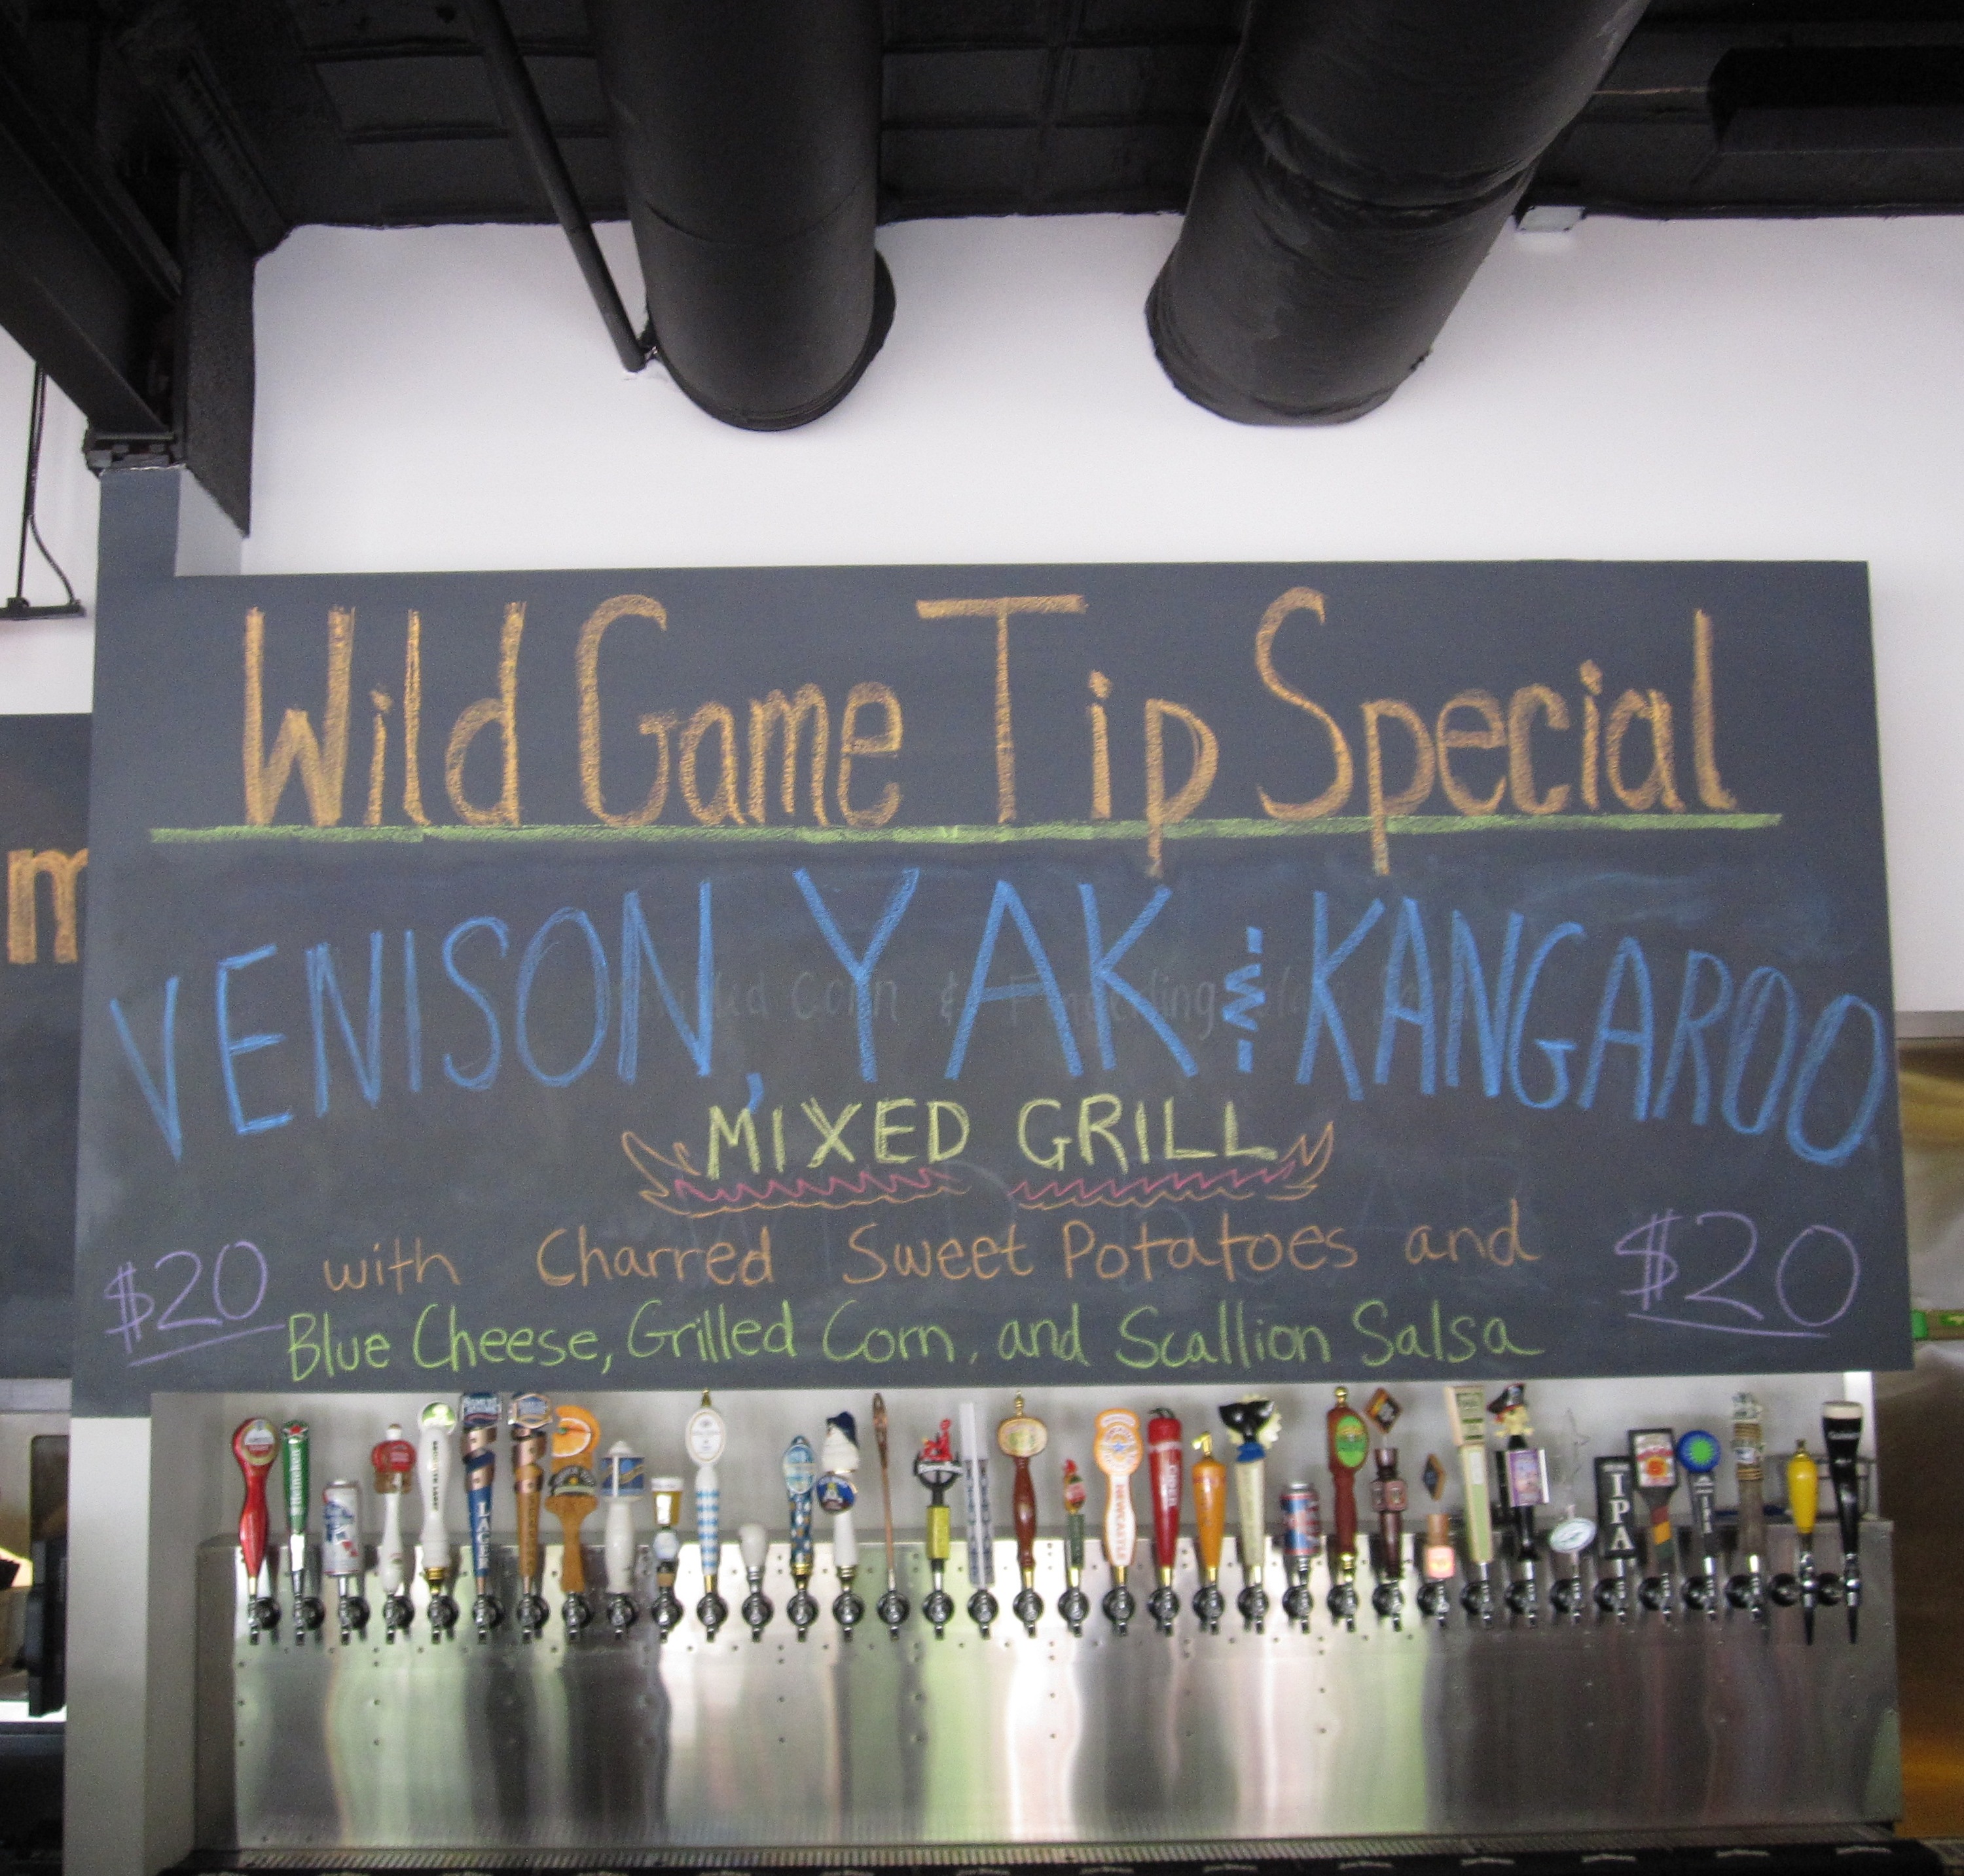 Wild Game Tip Special
VENISON, YAK & KANGAROO
MIXED GRILL
$20 with Charred Sweet Potatoes and $20
Blue Cheese, Grilled Corn, and Scallion Salsa
m
Heineken
LAGER
NEWCASTLE
IPA